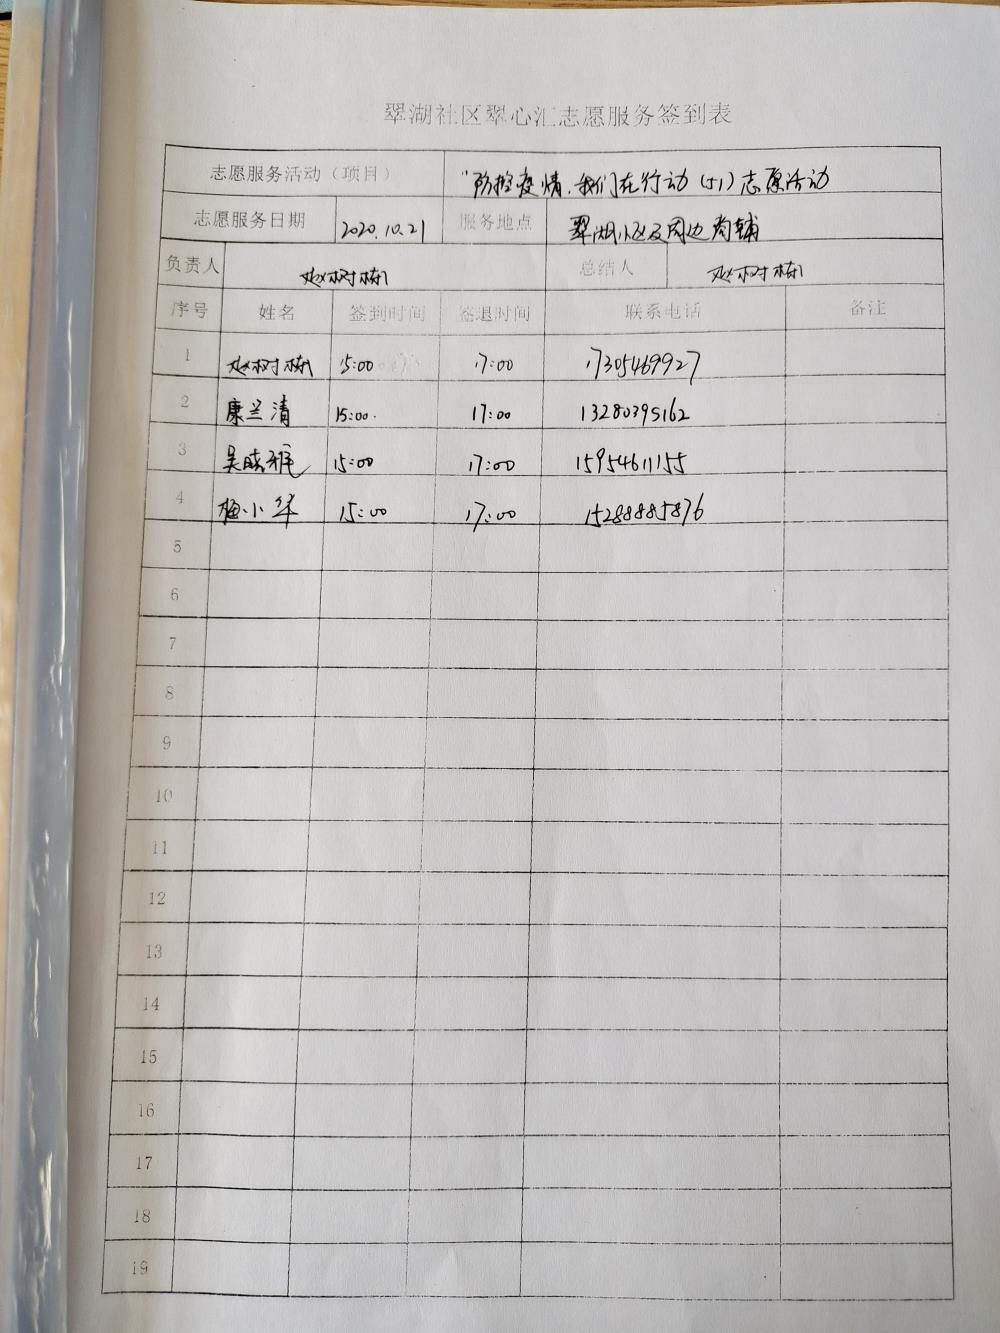 翠湖社区翠心汇志愿服务签到表
志愿服务活动（项目） "防控疫情、我们在行动（十一）志愿活动
志愿服务日期 2020.10.21 服务地点 翠湖小区及周边商铺
负责人 赵树栋 总结人 赵树栋
序号 姓名 签到时间 签退时间 联系电话 备注
1 赵树栋 15:00 17:00 17305469927
2 康兰清 15:00. 17:00 13280395162
3 吴晓雅 15:00 17:00 15954611155
4 梅小华 15:00 17:00 15288885876
5
6
7
8
9
10
11
12
13
14
15
16
17
18
19